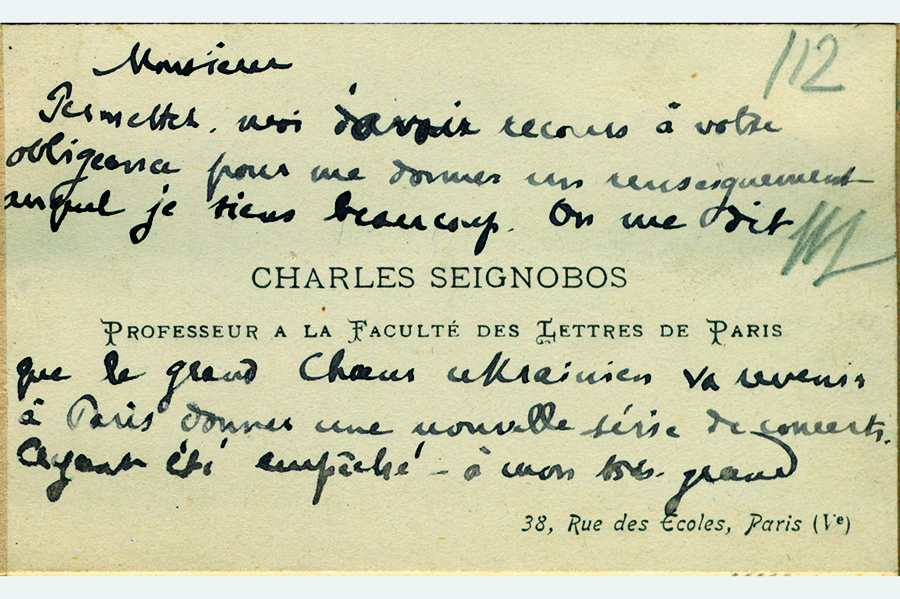 112
Monsieur
Permettez-moi d'avoir recours à votre
obligeance pour me donner un renseignement
auquel je tiens beaucoup. On me dit
CHARLES SEIGNOBOS
PROFESSEUR A LA FACULTÉ DES LETTRES DE PARIS
que le grand Chœur ukrainien va revenir
à Paris donner une nouvelle série de concerts.
Ayant été empêché - à mon très grand
38, Rue des Écoles, Paris (Vᵉ)